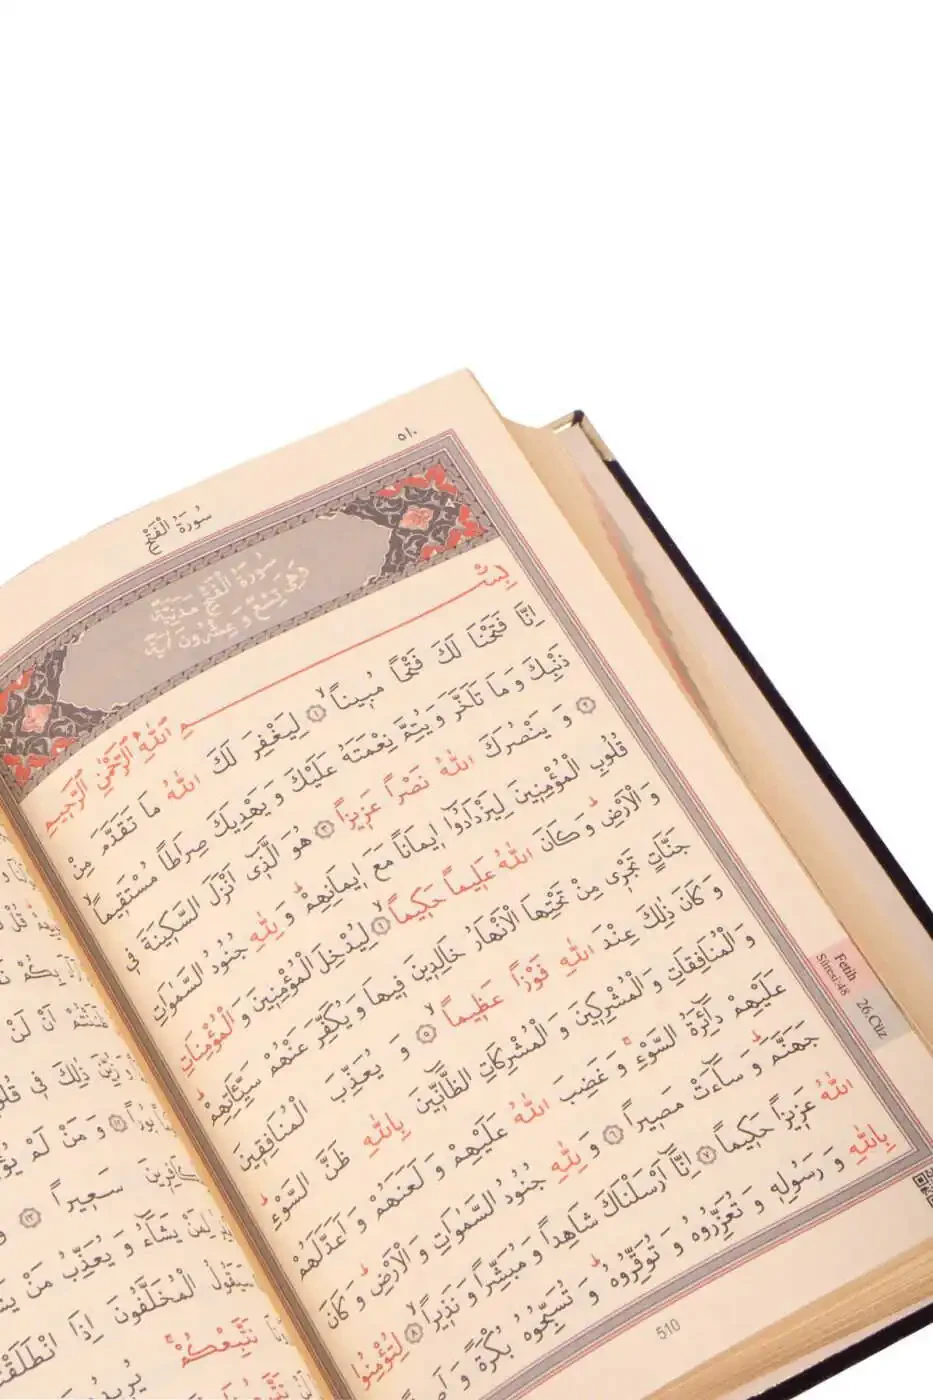 ٥١٠
سُورَةُ الْفَتْحِ
سُورَةُ الْفَتْحِ مَدَنِيَّةٌ
وَهِيَ تِسْعٌ وَ عِشْرُونَ اٰيَةً
بِسْمِ اللّٰهِ الرَّحْمٰنِ الرَّحٖيمِ
اِنَّا فَتَحْنَا لَكَ فَتْحًا مُبٖينًاۙ ﴿١﴾ لِيَغْفِرَ لَكَ اللّٰهُ مَا تَقَدَّمَ مِنْ
ذَنْبِكَ وَ مَا تَاَخَّرَ وَ يُتِمَّ نِعْمَتَهُ عَلَيْكَ وَ يَهْدِيَكَ صِرَاطًا مُسْتَقٖيمًاۙ
﴿٢﴾ وَ يَنْصُرَكَ اللّٰهُ نَصْرًا عَزٖيزًا ﴿٣﴾ هُوَ الَّذٖٓى اَنْزَلَ السَّكٖينَةَ فٖى
قُلُوبِ الْمُؤْمِنٖينَ لِيَزْدَادُٓوا اٖيمَانًا مَعَ اٖيمَانِهِمْؕ وَ لِلّٰهِ جُنُودُ السَّمٰوَاتِ
وَ الْاَرْضِؕ وَ كَانَ اللّٰهُ عَلٖيمًا حَكٖيمًاۙ ﴿٤﴾ لِيُدْخِلَ الْمُؤْمِنٖينَ وَ الْمُؤْمِنَاتِ
جَنَّاتٍ تَجْرٖى مِنْ تَحْتِهَا الْاَنْهَارُ خَالِدٖينَ فٖيهَا وَ يُكَفِّرَ عَنْهُمْ سَيِّئَاتِهِمْؕ
وَ كَانَ ذٰلِكَ عِنْدَ اللّٰهِ فَوْزًا عَظٖيمًاۙ ﴿٥﴾ وَ يُعَذِّبَ الْمُنَافِقٖينَ
وَ الْمُنَافِقَاتِ وَ الْمُشْرِكٖينَ وَ الْمُشْرِكَاتِ الظَّٓانّٖينَ بِاللّٰهِ ظَنَّ السَّوْءِؕ
عَلَيْهِمْ دَٓائِرَةُ السَّوْءِۚ وَ غَضِبَ اللّٰهُ عَلَيْهِمْ وَ لَعَنَهُمْ وَ اَعَدَّ لَهُمْ
جَهَنَّمَؕ وَ سَٓاءَتْ مَصٖيرًا ﴿٦﴾ وَ لِلّٰهِ جُنُودُ السَّمٰوَاتِ وَ الْاَرْضِؕ وَ كَانَ
اللّٰهُ عَزٖيزًا حَكٖيمًا ﴿٧﴾ اِنَّٓا اَرْسَلْنَاكَ شَاهِدًا وَ مُبَشِّرًا وَ نَذٖيرًاۙ ﴿٨﴾ لِتُؤْمِنُوا
بِاللّٰهِ وَ رَسُولِهٖ وَ تُعَزِّرُوهُ وَ تُوَقِّرُوهُؕ وَ تُسَبِّحُوهُ بُكْرَةً وَ
510
Fetih
Sûresi:48
26.Cüz
قُلْ
اَنْ لَنْ
ذٰلِكَ فٖى
﴿١٢﴾ وَ مَنْ لَمْ
سَعٖيرًا ﴿١٣﴾
يَشَٓاءُ وَ يُعَذِّبُ مَنْ
الْمُخَلَّفُونَ اِذَا
نَتَّبِعْكُمْۚ